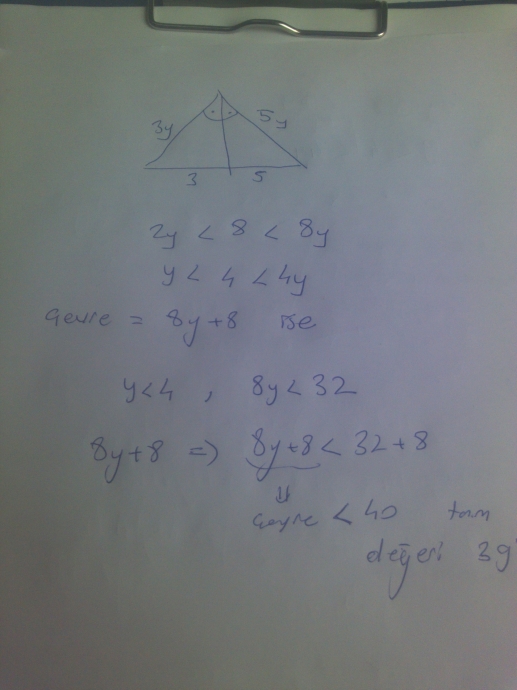 3y 5y
3 5
2y < 8 < 8y
y < 4 < 4y
Çevre = 8y+8 ise
y<4 , 8y < 32
8y+8 => 8y+8 < 32+8
⇓
Çevre < 40 tam
değeri 39